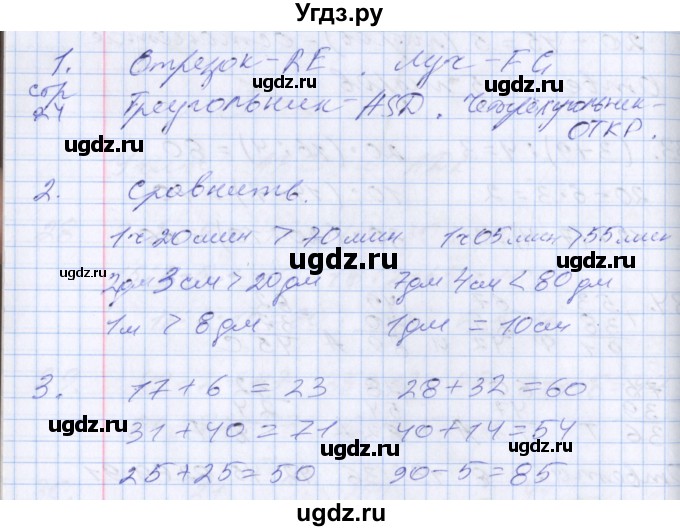 Угдз.ру
1. Отрезок - RE. Луч - FG
стр 24 Треугольник - ASD. Четырёхугольник -
ОТКР.
ugdz.ru ugdz.ru ugdz.ru
2. Сравнить.
1ч 20мин > 70мин 1ч 05мин > 55мин
ugdz.ru ugdz.ru ugdz.ru
2дм 3см > 20дм 7дм 4см < 80дм
1м > 8дм 1дм = 10см
ugdz.ru
3. 17+6 = 23 28+32=60
31+40=71 40+14=54
ugdz.ru ugdz.ru
25+25=50 90-5=85
ugdz.ru